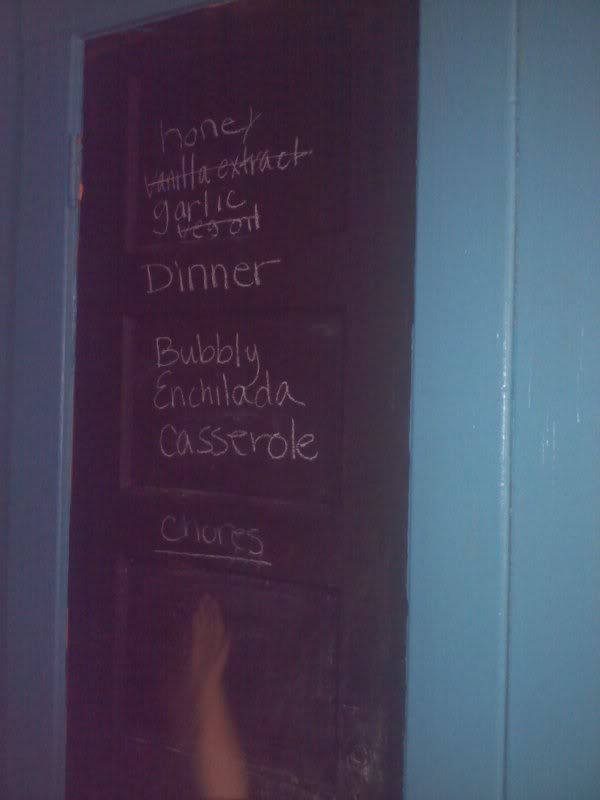 honey
vanilla extract
garlic
veg oil
Dinner
Bubbly
Enchilada
Casserole
Chores